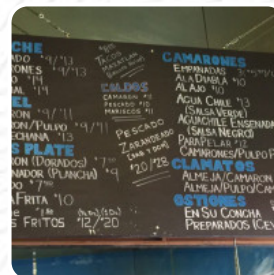 CHE
ADO $9/$13
RONES $9/$13
14
AL $14
EL
RON $9/$11
RON/PULPO $9/$11
ECHANA $13
S PLATE
RON (DORADOS)
NADOR (PLANCHA) $9
DO $7
FRITA $10
S FRITOS $12/$20
TACOS
CALDOS
CAMARON
PESCADO $10
MARISCOS $11
PESCADO
ZARANDEADO
$20/28
CAMARONES
EMPANADAS
A LA DIABLA $10
AL AJO $10
AGUA CHILE $13
(SALSA VERDE)
AGUACHILE ENSENADA
(SALSA NEGRO)
PARA PELAR $12
CAMARONES/PULPO
CLAMATOS
ALMEJA/CAMARON
ALMEJA/PULPO/CAM
OSTIONES
EN SU CONCHA
PREPARADOS (CEV